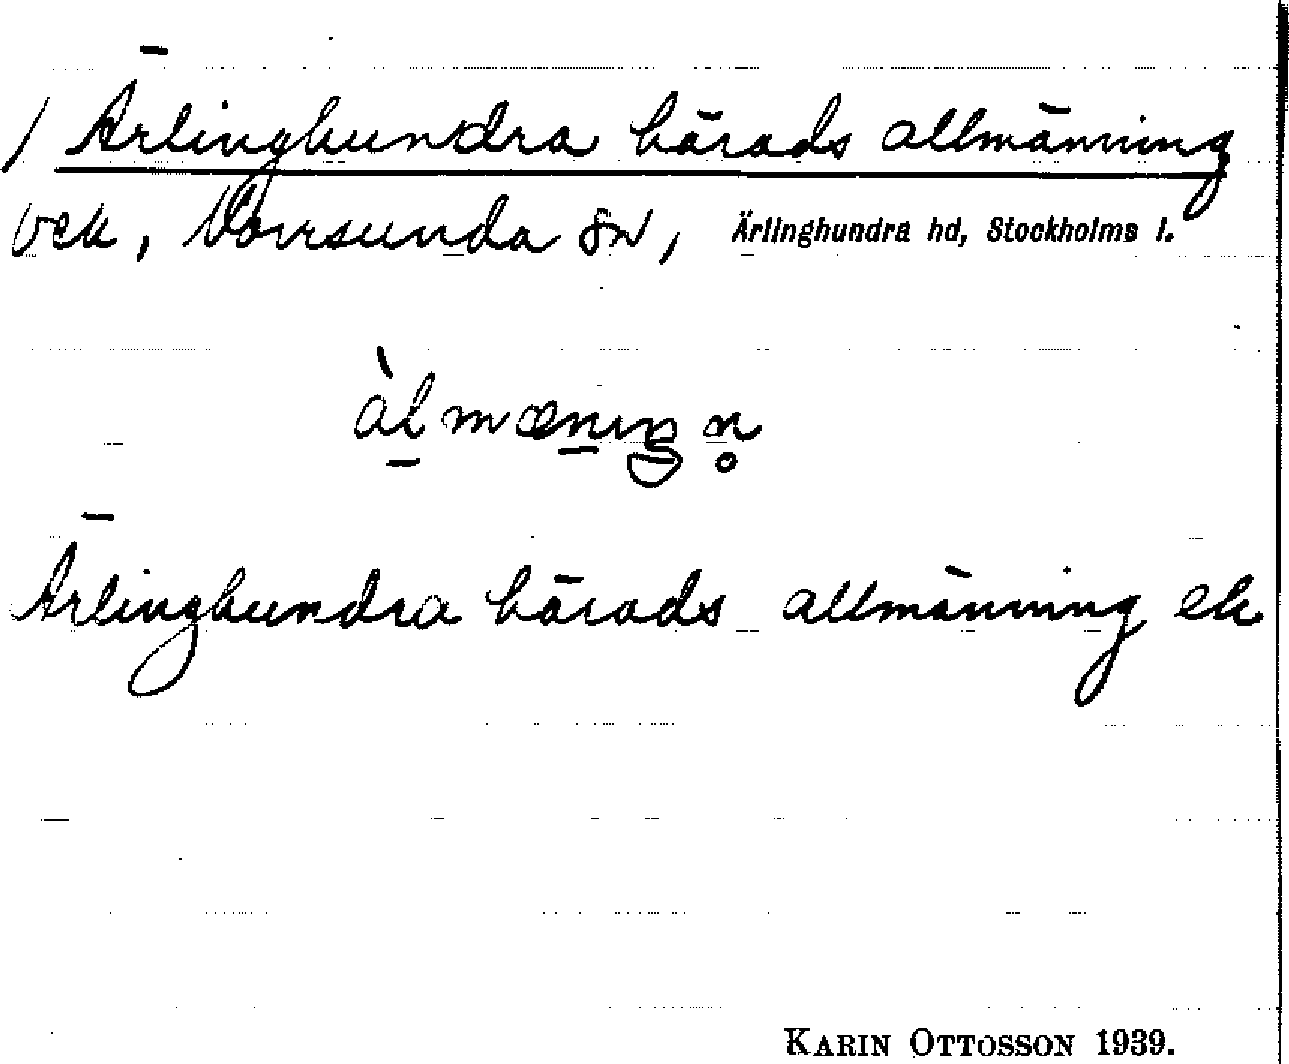 / Ärlinghundra härads allmänning
vek, Norrsunda sn, Ärlinghundra hd, Stockholms l.
àlmæniŋn̥
Ärlinghundra härads allmänning ek
KARIN OTTOSSON 1939.